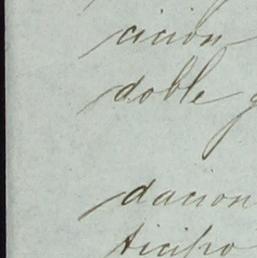 cicion
doble
dacion
ticipo